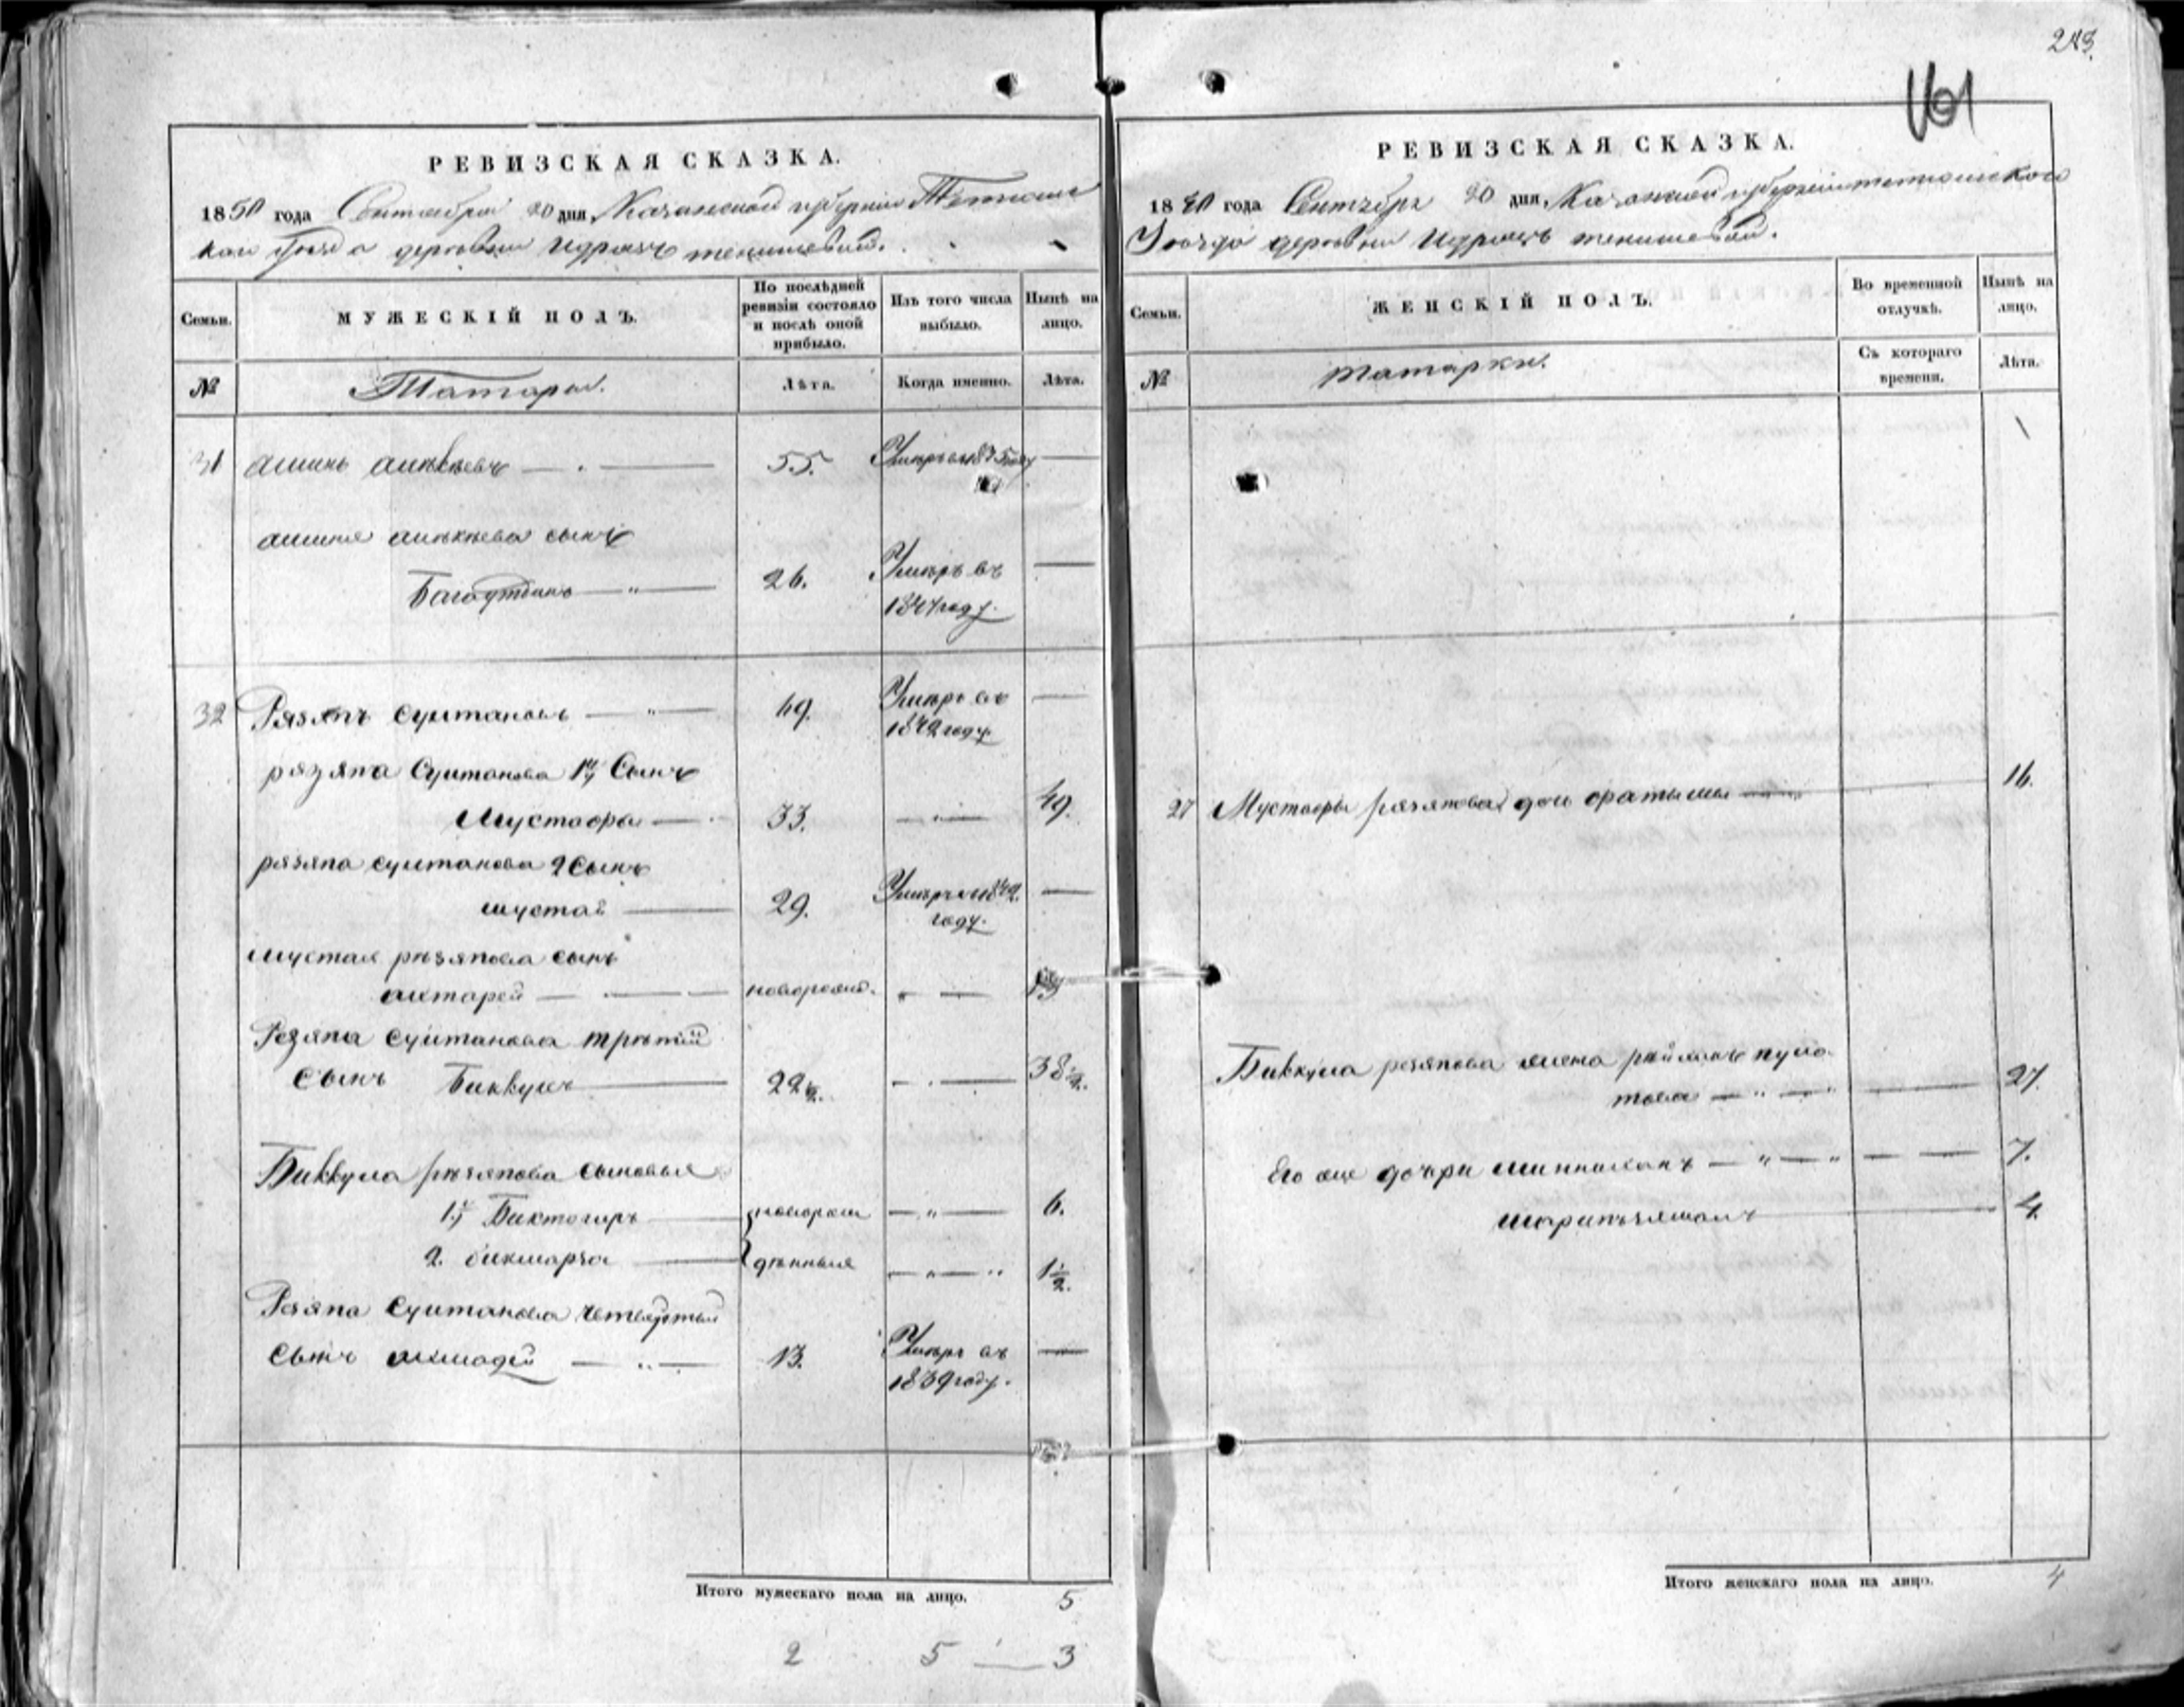 243.
161
РЕВИЗСКАЯ СКАЗКА.
1850 года Сентября 20 дня, Казанской губернии Тетюш
каго уезда деревни Идрясъ тенишевой.
Семьи.
МУЖЕСКІЙ ПОЛЪ.
По послѣдней ревизіи состояло и послѣ оной прибыло.
Изъ того числа выбыло.
Нынѣ на лицо.
№
Татары.
Лѣта.
Когда именно.
Лѣта.
31 55. Умеръ въ 1835 году —
сынъ
Багаутдинъ — 26. Умеръ въ —
1847 году
32 Рязяпъ Султановъ — 49. Умеръ въ —
1842 году
рязяпа Султанова 1й Сынъ
Мустафа — 33. — 49.
рязяпа султанова 2 Сынъ
мустай — 29. Умеръ въ 1842. —
году.
мустая рязяпова сынъ
ахтарей — новорожд. —
Резяпа Султанова третій
Сынъ Биккулъ — 22½. — 38½.
Биккула рязяпова сыновья
1й Биктогиръ — новорож — 6.
2. бикмарза — денныя — 1½.
Резяпа Султанова четвертый
Сынъ ахмадей — 13. Умеръ въ —
1839 году.
Итого мужескаго пола на лицо. 5
2 5 — 3
РЕВИЗСКАЯ СКАЗКА.
1850 года Сентября 20 дня, Казанской губерніи тетюшскаго
Уезда деревни Идрясъ тенишевой.
Семьи.
ЖЕНСКІЙ ПОЛЪ.
Во временной отлучкѣ.
Нынѣ на лицо.
№
татарки.
Съ котораго времени.
Лѣта.
27 Мустафы рязяпова дочь фатыма — 16.
Биккула резяпова жена
това — 27.
Его же дочри минлихан — 7.
4.
Итого женскаго пола на лицо. 4